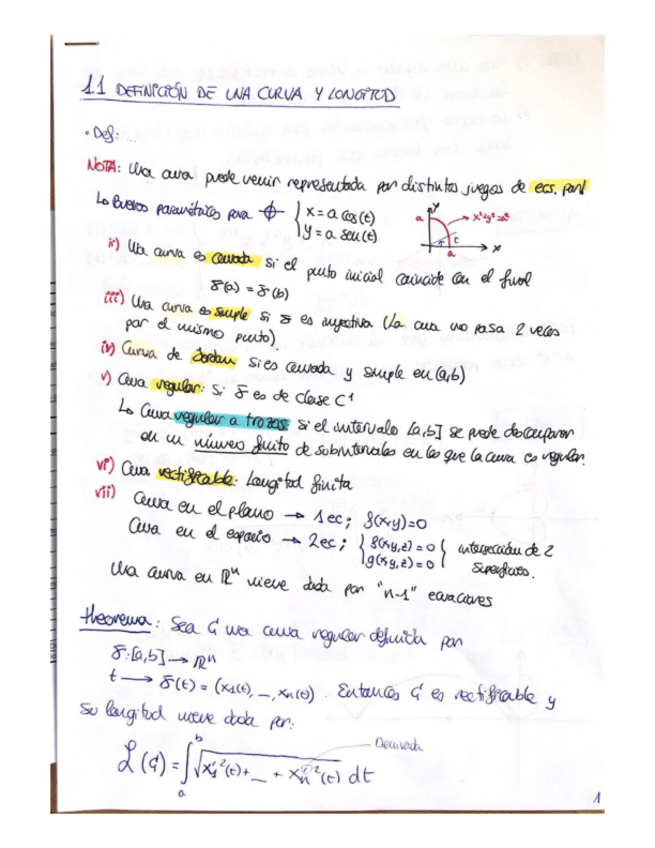 1.1 DEFINICIÓN DE UNA CURVA Y LONGITUD
• Def: ...
NOTA: Una curva puede venir representada por distintos juegos de ecs. par
↳ Buenos paramétricas para
{ x = a cos(t)
y = a sen(t)
y
a
x²+y²=a²
t
a
x
ii) Una curva es cerrada si el punto inicial coincide con el final
γ(a) = γ(b)
iii) Una curva es simple si γ es inyectiva (La curva no pasa 2 veces
por el mismo punto).
iv) Curva de Jordan si es cerrada y simple en (a,b)
v) Curva regular: Si γ es de clase C¹
↳ Curva regular a trozos: Si el intervalo [a,b] se puede descomponer
en un número finito de subintervalos en los que la curva es regular.
vi) Curva rectificable: Longitud finita
vii) Curva en el plano → 1 ec; f(x,y)=0
Curva en el espacio → 2 ec; { f(x,y,z)=0
g(x,y,z)=0 } intersección de 2
superficies.
Una curva en ℝⁿ viene dada por "n-1" ecuaciones
Theorema: Sea C una curva regular definida por
γ: [a,b] → ℝⁿ
t → γ(t) = (x₁(t), ..., xₙ(t)). Entonces C es rectificable y
su longitud viene dada por:
L(C) = ∫ₐᵇ √(x₁'²(t) + ... + xₙ'²(t)) dt
Derivada
1